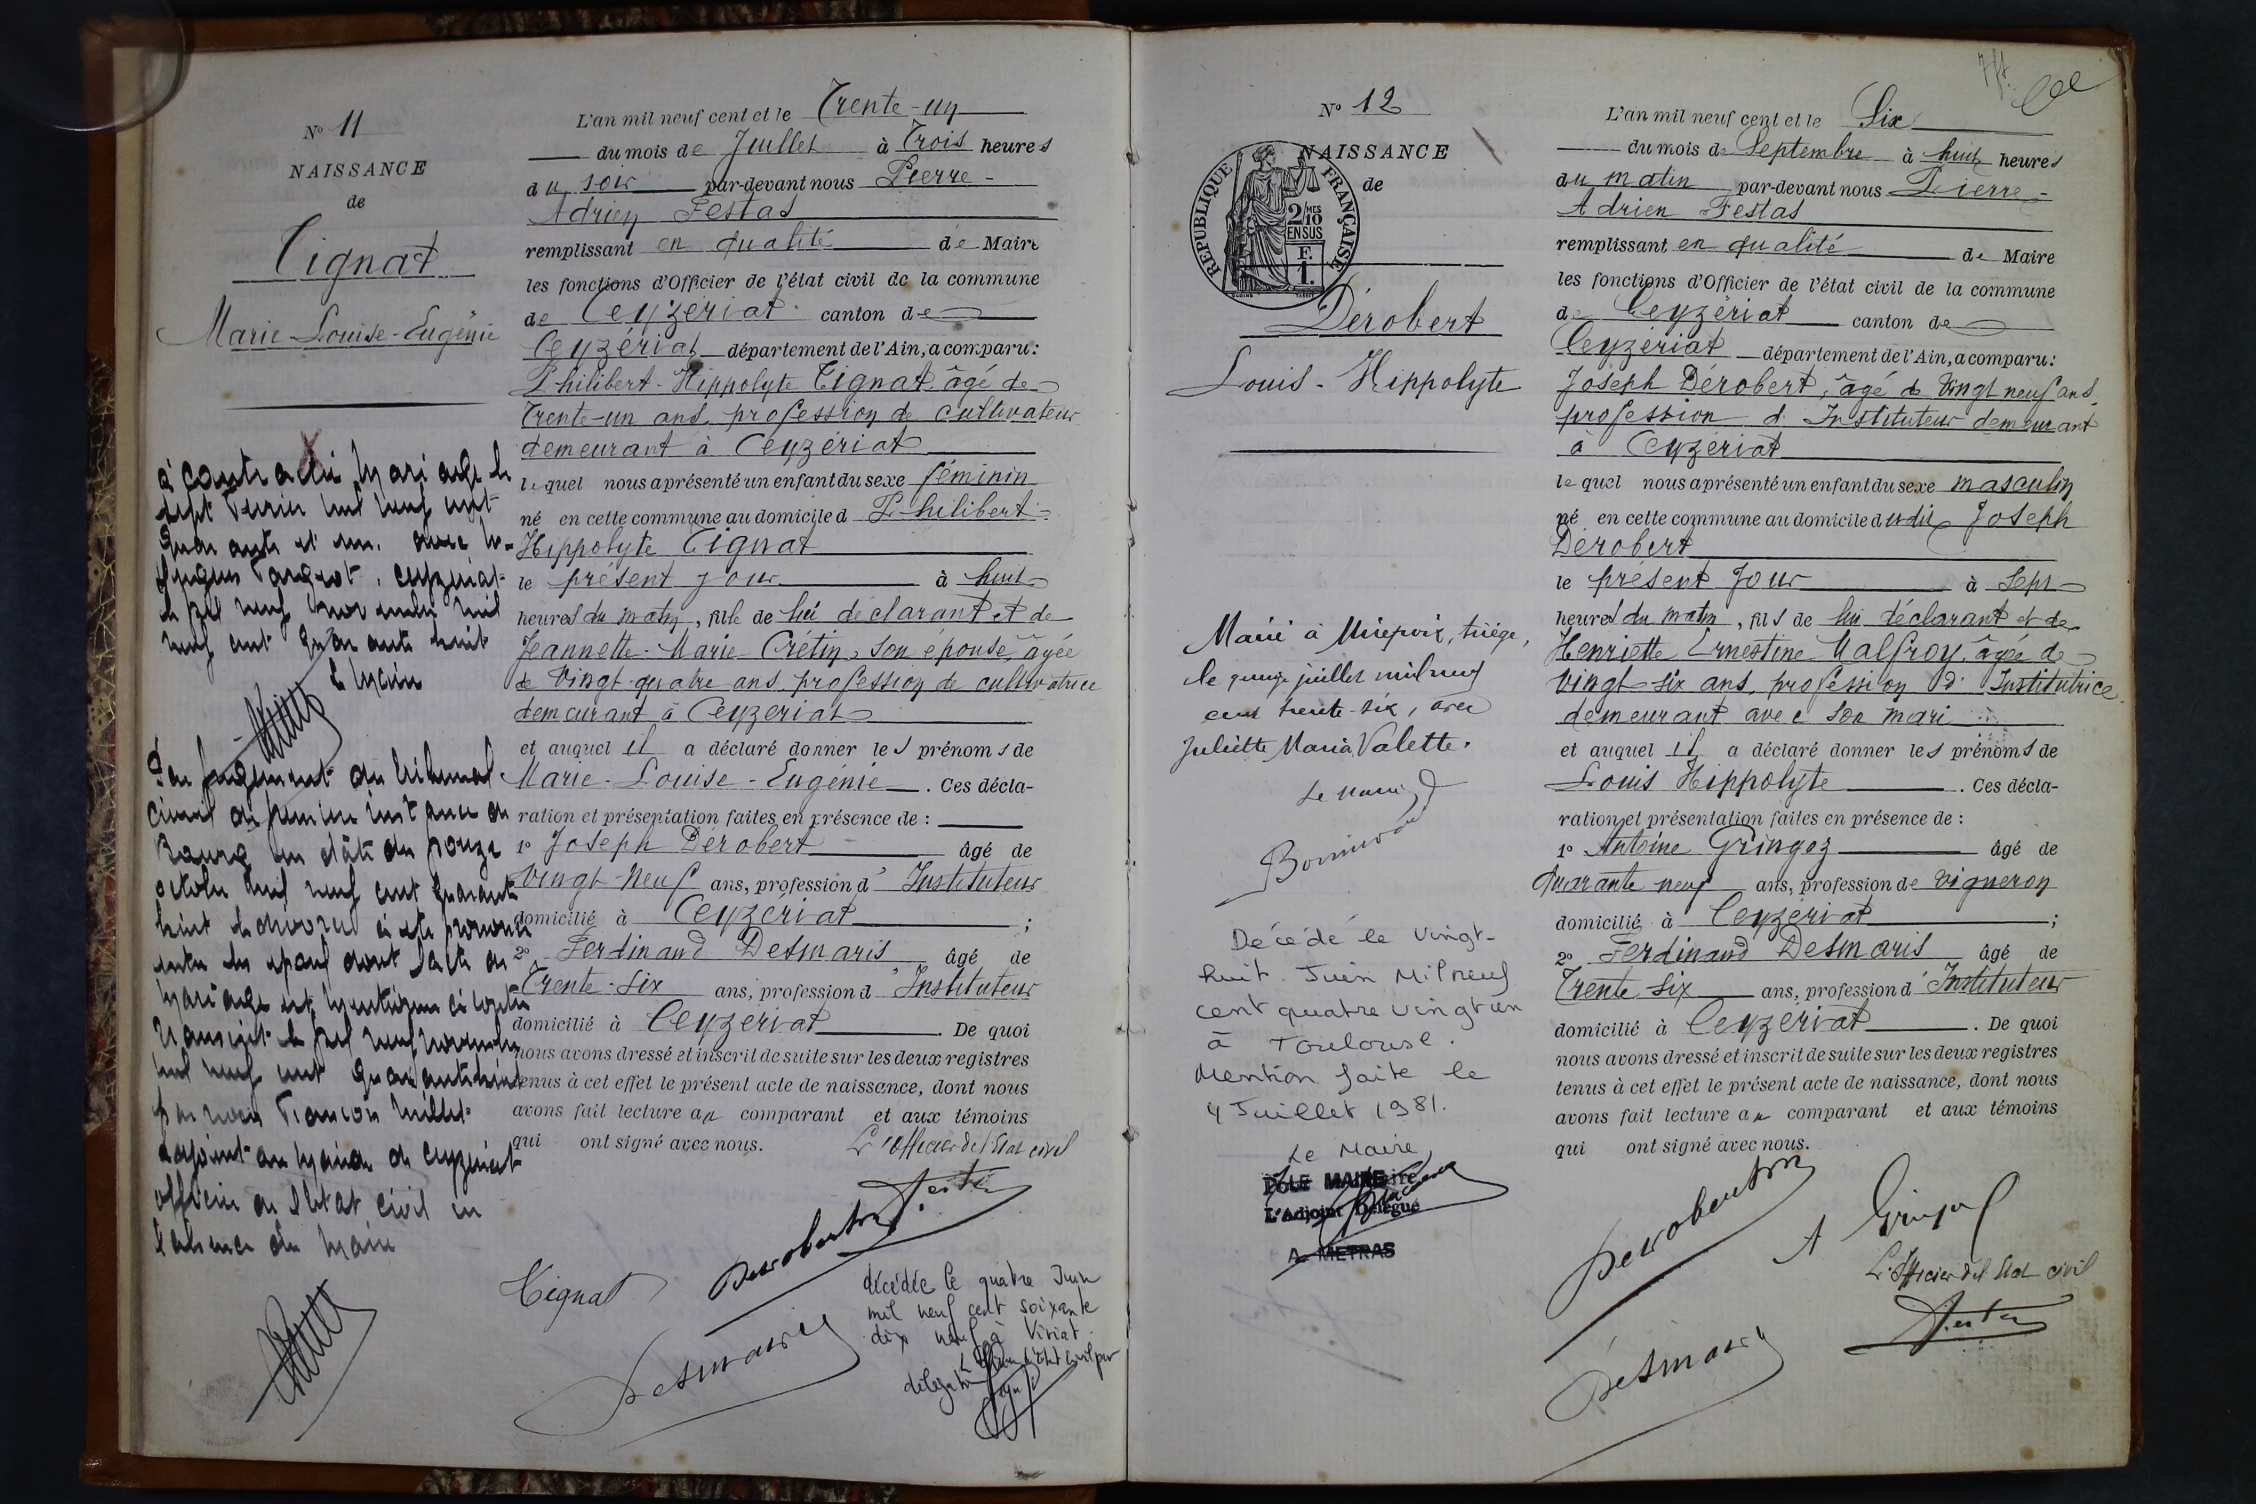 N° 11
NAISSANCE
de
Tignat
Marie-Louise-Eugénie
a contracté mariage le
sept février mil neuf cent
quarante et un, avec
Ceyzériat
le dix neuf novembre mil
neuf cent quarante huit
Le Maire
Par jugement du tribunal
civil de première instance de
Bourg en date du douze
octobre mil neuf cent quarante
huit le divorce a été prononcé
entre les époux dont l'acte de
mariage est mentionné ci contre
Transcrit le dix neuf novembre
mil neuf cent quarante huit
par nous François Millet
adjoint au maire de Ceyzériat
officier de l'état civil en
l'absence du maire
L'an mil neuf cent et le Trente-un
du mois de Juillet à Trois heures
du soir par-devant nous Pierre-
Adrien Festas
remplissant en qualité de Maire
les fonctions d'Officier de l'état civil de la commune
de Ceyzériat canton de
Ceyzériat département de l'Ain, a comparu:
Philibert-Hippolyte Tignat âgé de
Trente-un ans, profession de cultivateur
demeurant à Ceyzériat
lequel nous a présenté un enfant du sexe féminin
né en cette commune au domicile d Philibert-
Hippolyte Tignat
le présent jour à huit
heures du matin, fille de lui déclarant et de
Jeannette-Marie Crétin, son épouse, âgée
de Vingt-quatre ans, profession de cultivatrice
demeurant à Ceyzériat
et auquel il a déclaré donner les prénoms de
Marie-Louise-Eugénie. Ces décla-
ration et présentation faites en présence de :
1° Joseph Dérobert âgé de
Vingt-neuf ans, profession d' Instituteur
domicilié à Ceyzériat ;
2° Ferdinand Desmaris âgé de
Trente-six ans, profession d' Instituteur
domicilié à Ceyzériat. De quoi
nous avons dressé et inscrit de suite sur les deux registres
tenus à cet effet le présent acte de naissance, dont nous
avons fait lecture au comparant et aux témoins
qui ont signé avec nous. L'officier de l'Etat civil
Festas
Derobert
Tignat
Desmaris
décédée le quatre Juin
mil neuf cent soixante
dix neuf à Viriat
L'Officier d'Etat Civil par
délégation
N° 12
NAISSANCE
de
REPUBLIQUE FRANÇAISE
2/10 MES
EN SUS
F.
1.
Dérobert
Louis-Hippolyte
Marié à Mirepoix, Ariège,
le quinze juillet mil neuf
cent trente-six, avec
Juliette Maria Valette.
Le Maire
Décédé le vingt-
huit Juin Mil neuf
cent quatre vingt un
à Toulouse.
Mention faite le
4 Juillet 1981.
Le Maire,
POUR MAIRE
L'Adjoint Délégué
A. METRAS
L'an mil neuf cent et le Six
du mois de Septembre à huit heures
du matin par-devant nous Pierre-
Adrien Festas
remplissant en qualité de Maire
les fonctions d'Officier de l'état civil de la commune
de Ceyzériat canton de
Ceyzériat département de l'Ain, a comparu:
Joseph Dérobert, âgé de Vingt neuf ans,
profession d' Instituteur demeurant
à Ceyzériat
lequel nous a présenté un enfant du sexe masculin
né en cette commune au domicile dudit Joseph
Dérobert
le présent jour à Sept
heures du matin, fils de lui déclarant et de
Henriette Ernestine Malfroy, âgée de
Vingt-six ans, profession d' Institutrice
demeurant avec son mari
et auquel il a déclaré donner les prénoms de
Louis Hippolyte. Ces décla-
ration et présentation faites en présence de :
1° Antoine Gringoz âgé de
Quarante neuf ans, profession de vigneron
domicilié à Ceyzériat ;
2° Ferdinand Desmaris âgé de
Trente six ans, profession d' Instituteur
domicilié à Ceyzériat. De quoi
nous avons dressé et inscrit de suite sur les deux registres
tenus à cet effet le présent acte de naissance, dont nous
avons fait lecture au comparant et aux témoins
qui ont signé avec nous.
Derobert
A Gringoz
L'officier de l'Etat civil
Festas
Desmaris